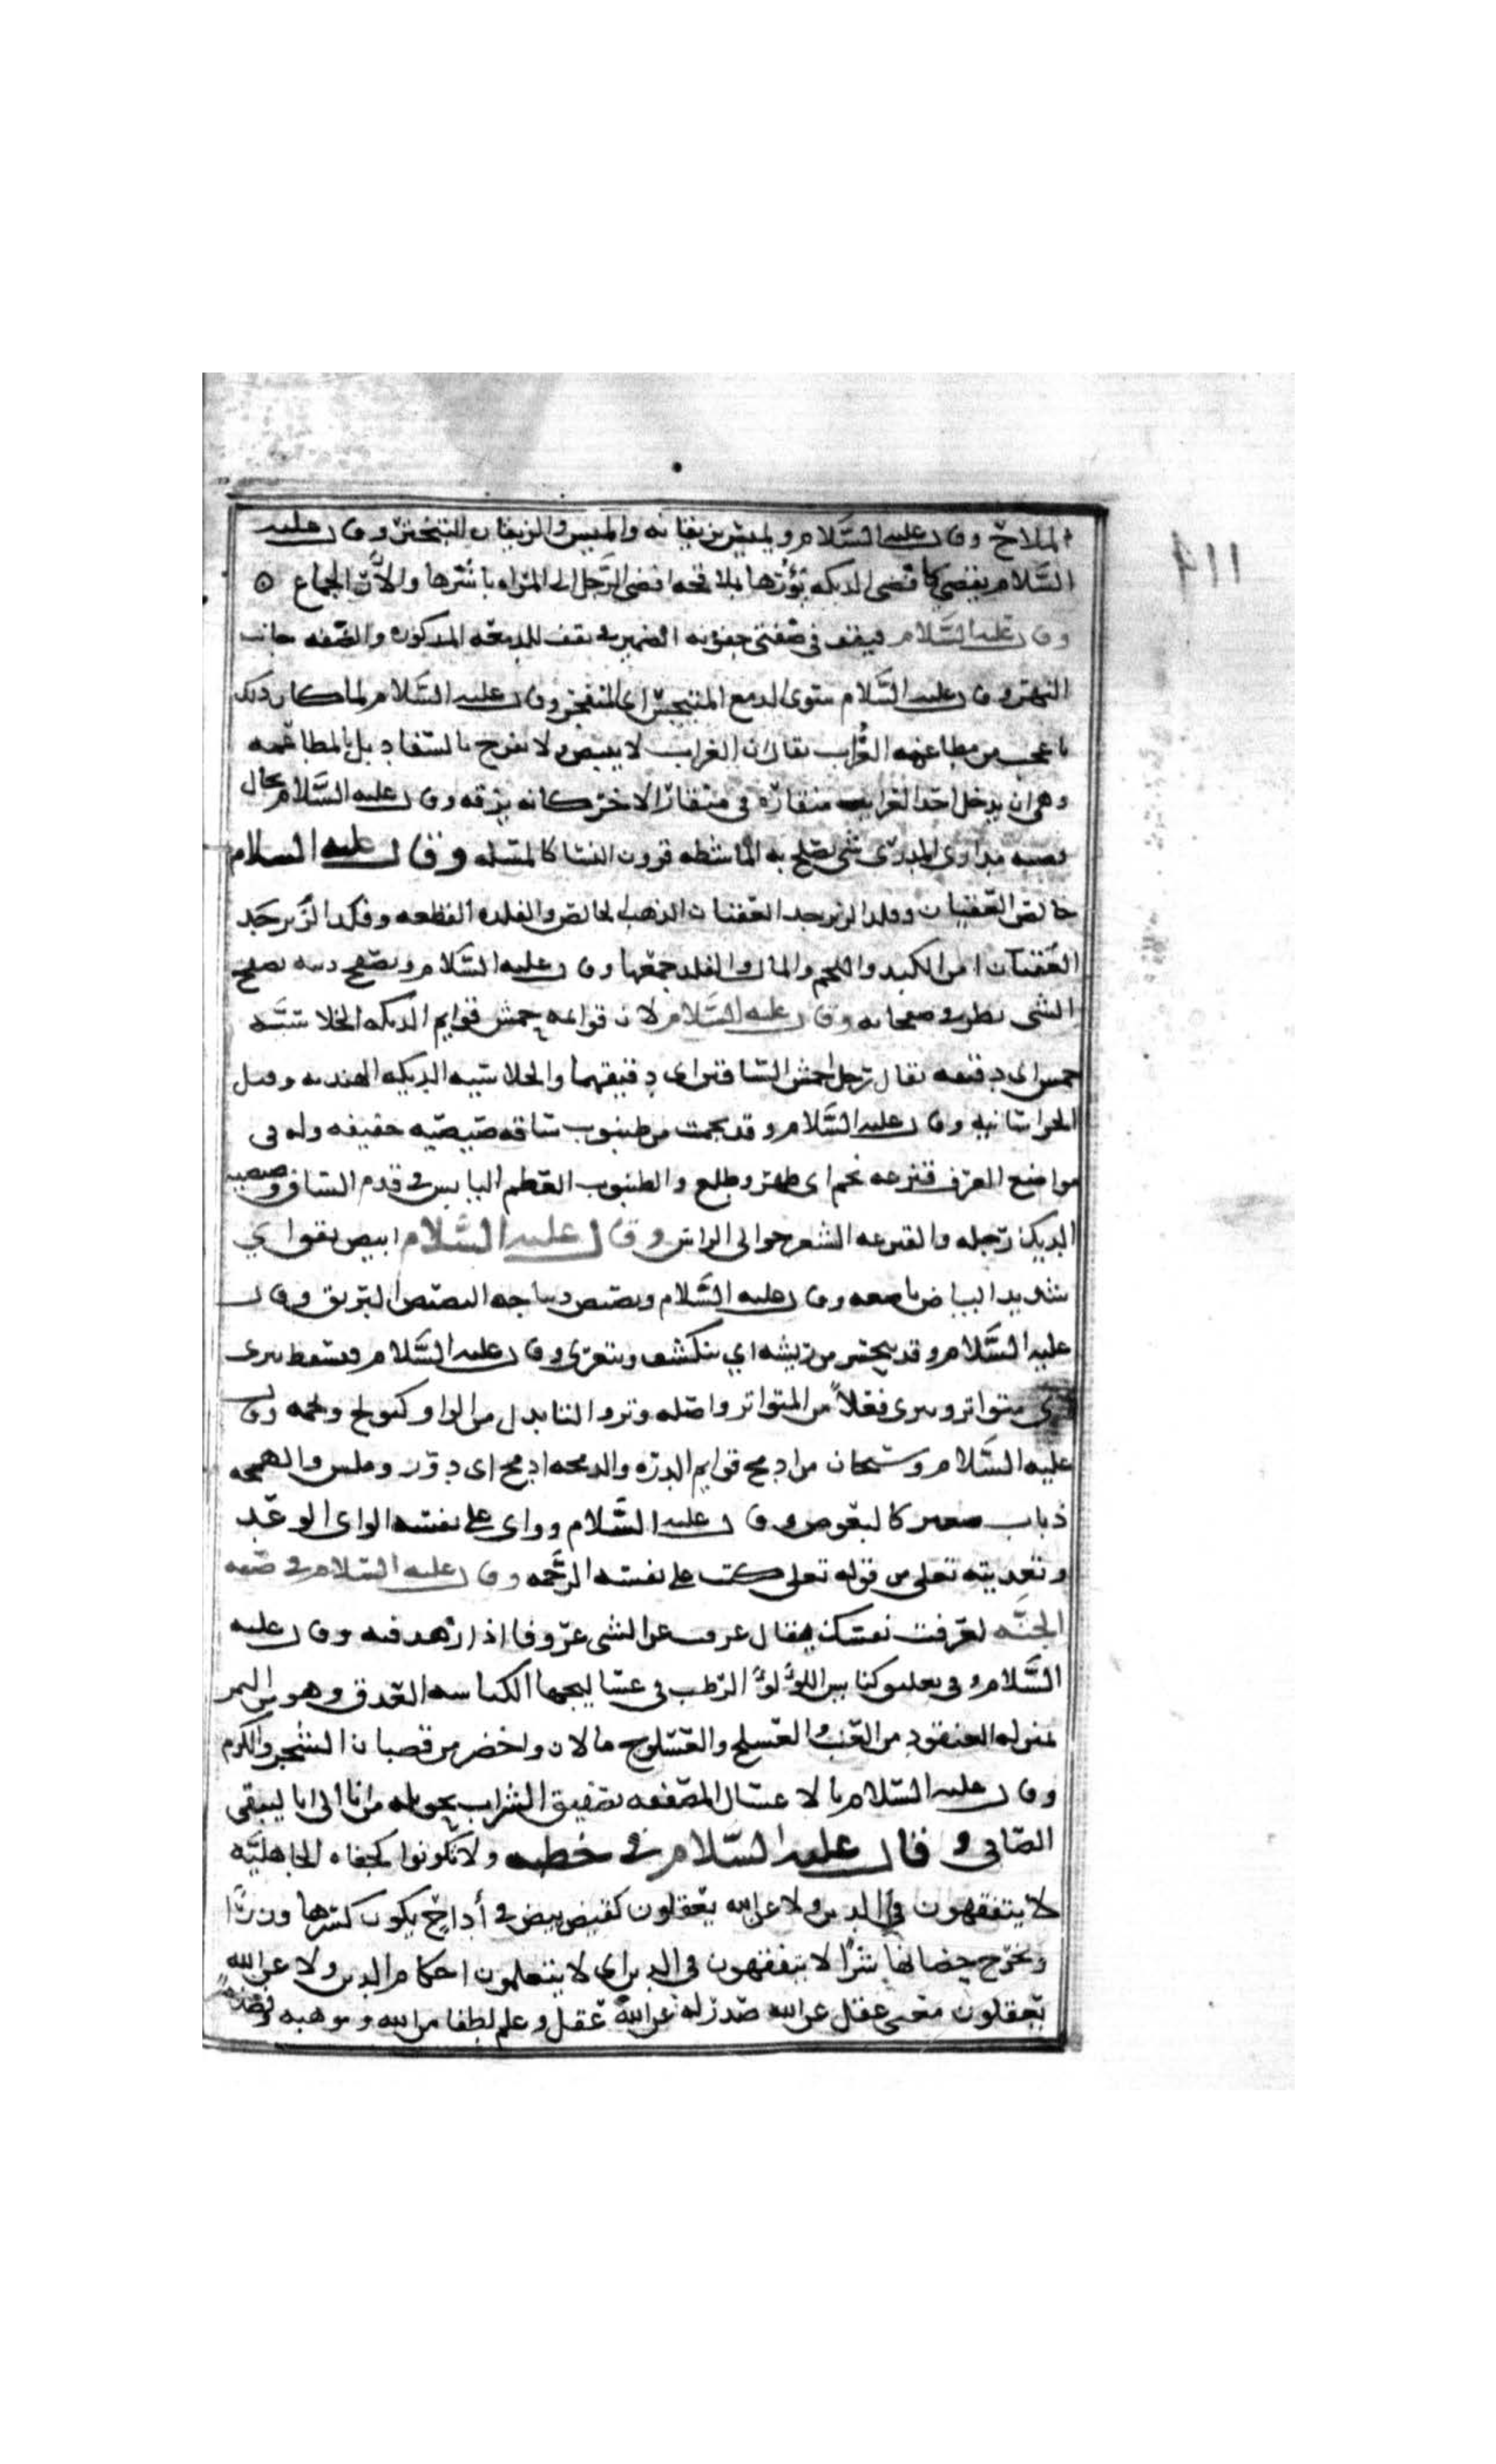 الملاح وقال عليه السلام ويميس بزيفانه والميس والزيفان التبختر وقال عليه
السلام يفضي كافضى الديكة يؤرها بملاقحه افضى الرجل الى المراه باشرها والأر الجماع ه
وقال عليه السلام فيقف في ضفتي جفونه الضمير في تقف للدمعه المذكوره والضفه جانب
النهر وقال عليه السلام سوى الدمع المنبجس اي المنفجر وقال عليه السلام لما كان ذلك
باعجب من مطاعمه الغراب يقال ان الغراب لا يبيض ولا يفرخ بالسفاد بل بالمطاعمه
وهي ان يدخل احد الغرابين منقاره في منقار الاخر كانه يزقه وقال عليه السلام تخال
قصبه مدارى المدرى شي تصلح به الماشطه قرون النسا كالمسله وقال عليه السلام
خالص العقيان وفلذ الزبرجد العقيان الذهب الخالص والفلذه القطعه وفلذ الزبرجد
من الكبد واللحم والمال والفلذ جمعها وقال عليه السلام وتصفح ذنبه تصفح
الشي نظر في صفحاته وقال عليه السلام لان قوايمه حمش قوايم الديكه الخلاسيه
حمش اي دقيقه يقال رجل احمش الساقين اي دقيقهما والخلاسيه الديكه الهنديه وقيل
الخراسانيه وقال عليه السلام وقد نجمت من ظنبوب ساقه صيصيه خفيفه وله في
مواضع العرف قنزعه نجم اي ظهر وطلع والظنبوب العظم اليابس في قدم الساق وصيصيه
الديك رجله والقنزعه الشعر حوالى الراس وقال عليه السلام ابيض يقق اي
شديد البياض ناصعه وقال عليه السلام وبصيص ديباجه البصيص البريق وقال
عليه السلام وقد يتحسر من ريشه اي ينكشف ويتعرى وقال عليه السلام وتسقط تترى
اي متواتر وتترى فعلا من المتواتر واصله وترو التا بدل من الواو كتولج وتخمه وقال
عليه السلام وسبحان من ادمج قوايم الذره والدمجه ادمج اي دور وملس والهمجه
ذباب صغير كالبعوض وقال عليه السلام وواى على نفسه الواي الوعد
وتعديته بعلى من قوله تعلى كتب على نفسه الرحمه وقال عليه السلام في صفه
الجنه لعزفت نفسك يقال عزف عن الشي عزوفا اذا زهد فيه وقال عليه
السلام وفي تعليق كبايس اللؤلؤ الرطب في عساليجها الكباسه العذق وهو من التمر
بمنزله العنقود من العنب والعسلج والعسلوج ما لان واخضر من قصبان الشجر والكرم
وقال عليه السلام بالاعسال المصفقه تصفيق الشراب تحويله من انا الى انا ليبقى
الصافي وقال عليه السلام في خطبه ولا تكونوا كجفاه الجاهليه
لا يتفقهون في الدين ولا عن الله يعقلون كقيض بيض في أداح يكون كسرها وزرا
ويخرج حضانها شرا لا يتفقهون في الدين اي لا يتعلمون احكام الدين ولا عن الله
يعقلون معنى عقل عن الله صدر له عن الله عقل وعلم لطفا من الله وموهبه